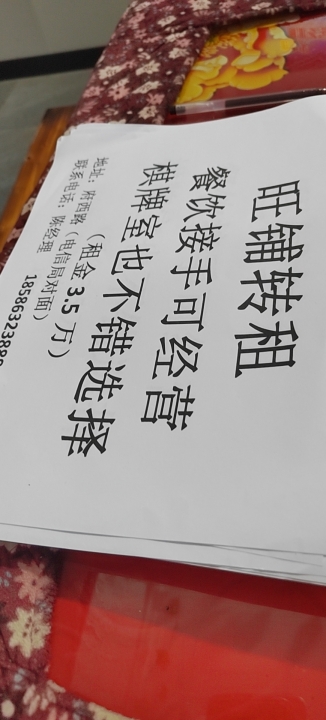 旺铺转租
餐饮接手可经营
棋牌室也不错选择
（租金3.5万）
地址：府西路（电信局对面）
联系电话：陈经理